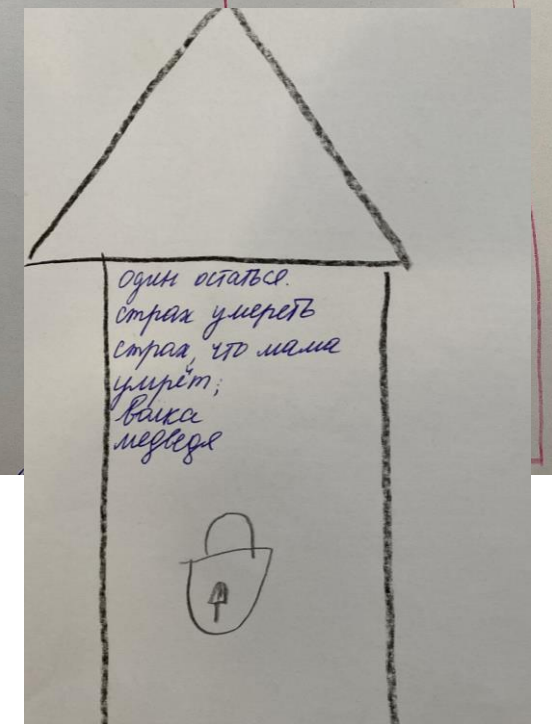 один остаться.
страх умереть
страх, что мама
умрёт;
волка
медведя